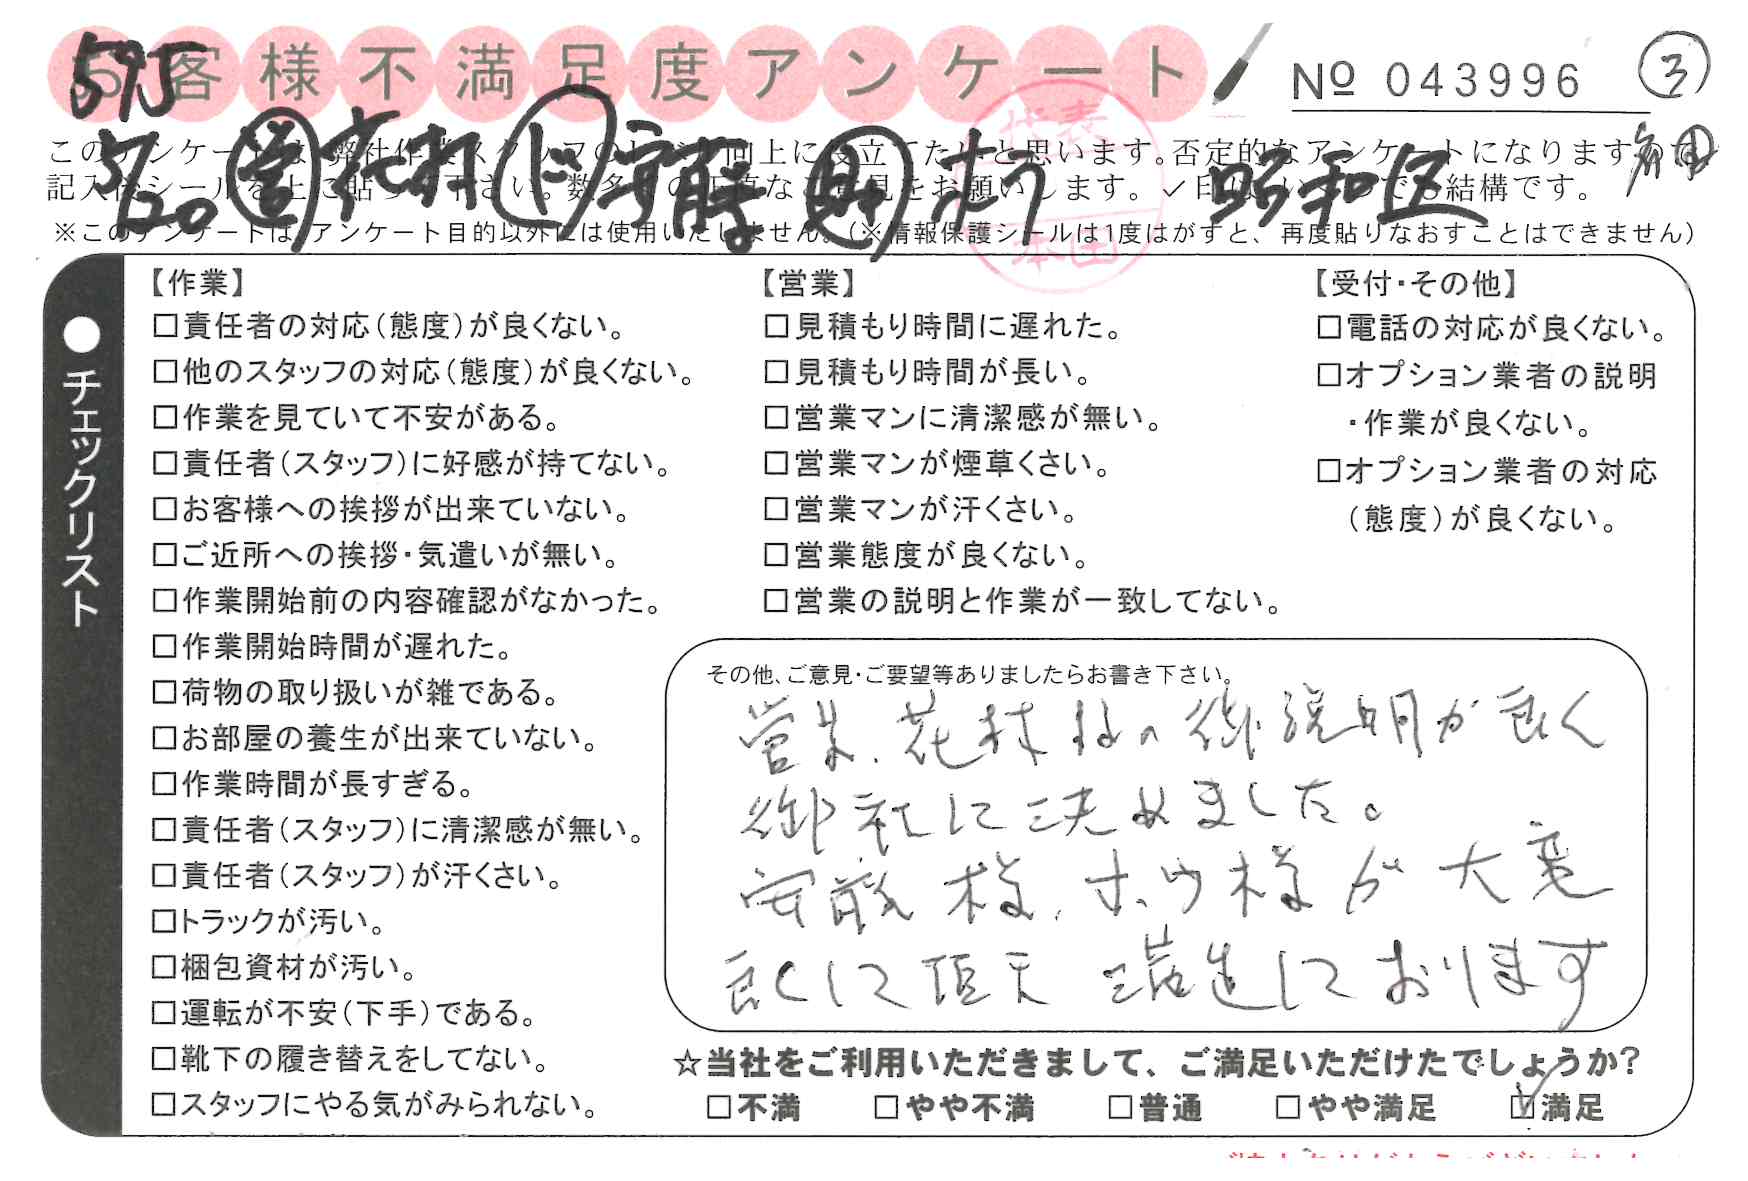 お客様不満足度アンケート
№ 043996 ③
593
5/20 営 花村 ド 安藤 助 ホウ 昭和区
代表
本田
このアンケートは、弊社作業スタッフのレベル向上に役立てたいと思います。否定的なアンケートになりますので
記入後シールを上に貼って下さい。数多くの正直なご意見をお願いします。✓印はいくつでも結構です。
※このアンケートは、アンケート目的以外には使用いたしません。(※情報保護シールは1度はがすと、再度貼りなおすことはできません)
●チェックリスト
【作業】
□責任者の対応(態度)が良くない。
□他のスタッフの対応(態度)が良くない。
□作業を見ていて不安がある。
□責任者(スタッフ)に好感が持てない。
□お客様への挨拶が出来ていない。
□ご近所への挨拶・気遣いが無い。
□作業開始前の内容確認がなかった。
□作業開始時間が遅れた。
□荷物の取り扱いが雑である。
□お部屋の養生が出来ていない。
□作業時間が長すぎる。
□責任者(スタッフ)に清潔感が無い。
□責任者(スタッフ)が汗くさい。
□トラックが汚い。
□梱包資材が汚い。
□運転が不安(下手)である。
□靴下の履き替えをしてない。
□スタッフにやる気がみられない。
【営業】
□見積もり時間に遅れた。
□見積もり時間が長い。
□営業マンに清潔感が無い。
□営業マンが煙草くさい。
□営業マンが汗くさい。
□営業態度が良くない。
□営業の説明と作業が一致してない。
【受付・その他】
□電話の対応が良くない。
□オプション業者の説明
・作業が良くない。
□オプション業者の対応
(態度)が良くない。
その他、ご意見・ご要望等ありましたらお書き下さい。
営業、花村様の御説明が良く
御社に決めました。
安藤様、ホウ様が大変
良くして頂き満足しております
☆当社をご利用いただきまして、ご満足いただけたでしょうか?
□不満 □やや不満 □普通 □やや満足 ☑満足